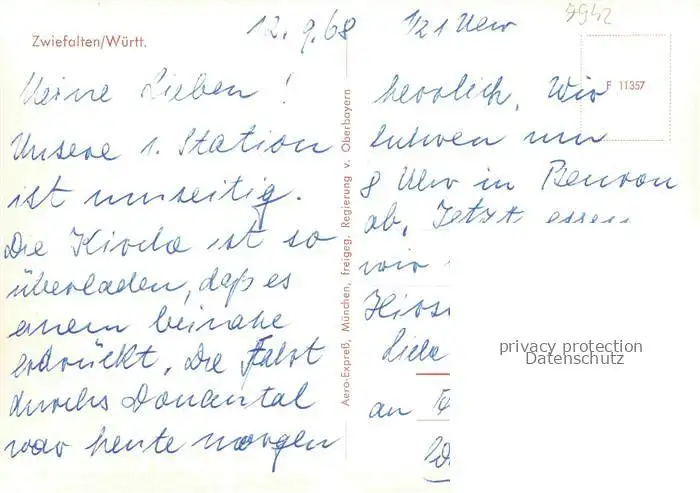 Zwiefalten/Württ.
12.9.68
Meine Lieben!
Unsere 1. Station
ist umseitig.
Die Kirche ist so
überladen, daß es
einem beinahe
erdrückt. Die Fahrt
durchs Donautal
war heute morgen
Aero-Expreß, München, freigeg. Regierung v. Oberbayern
1/2 1 Uhr
7942
F 11357
herrlich. Wir
fuhren um
8 Uhr in Beuron
ab, Jetzt essen
wir
an
privacy protection
Datenschutz